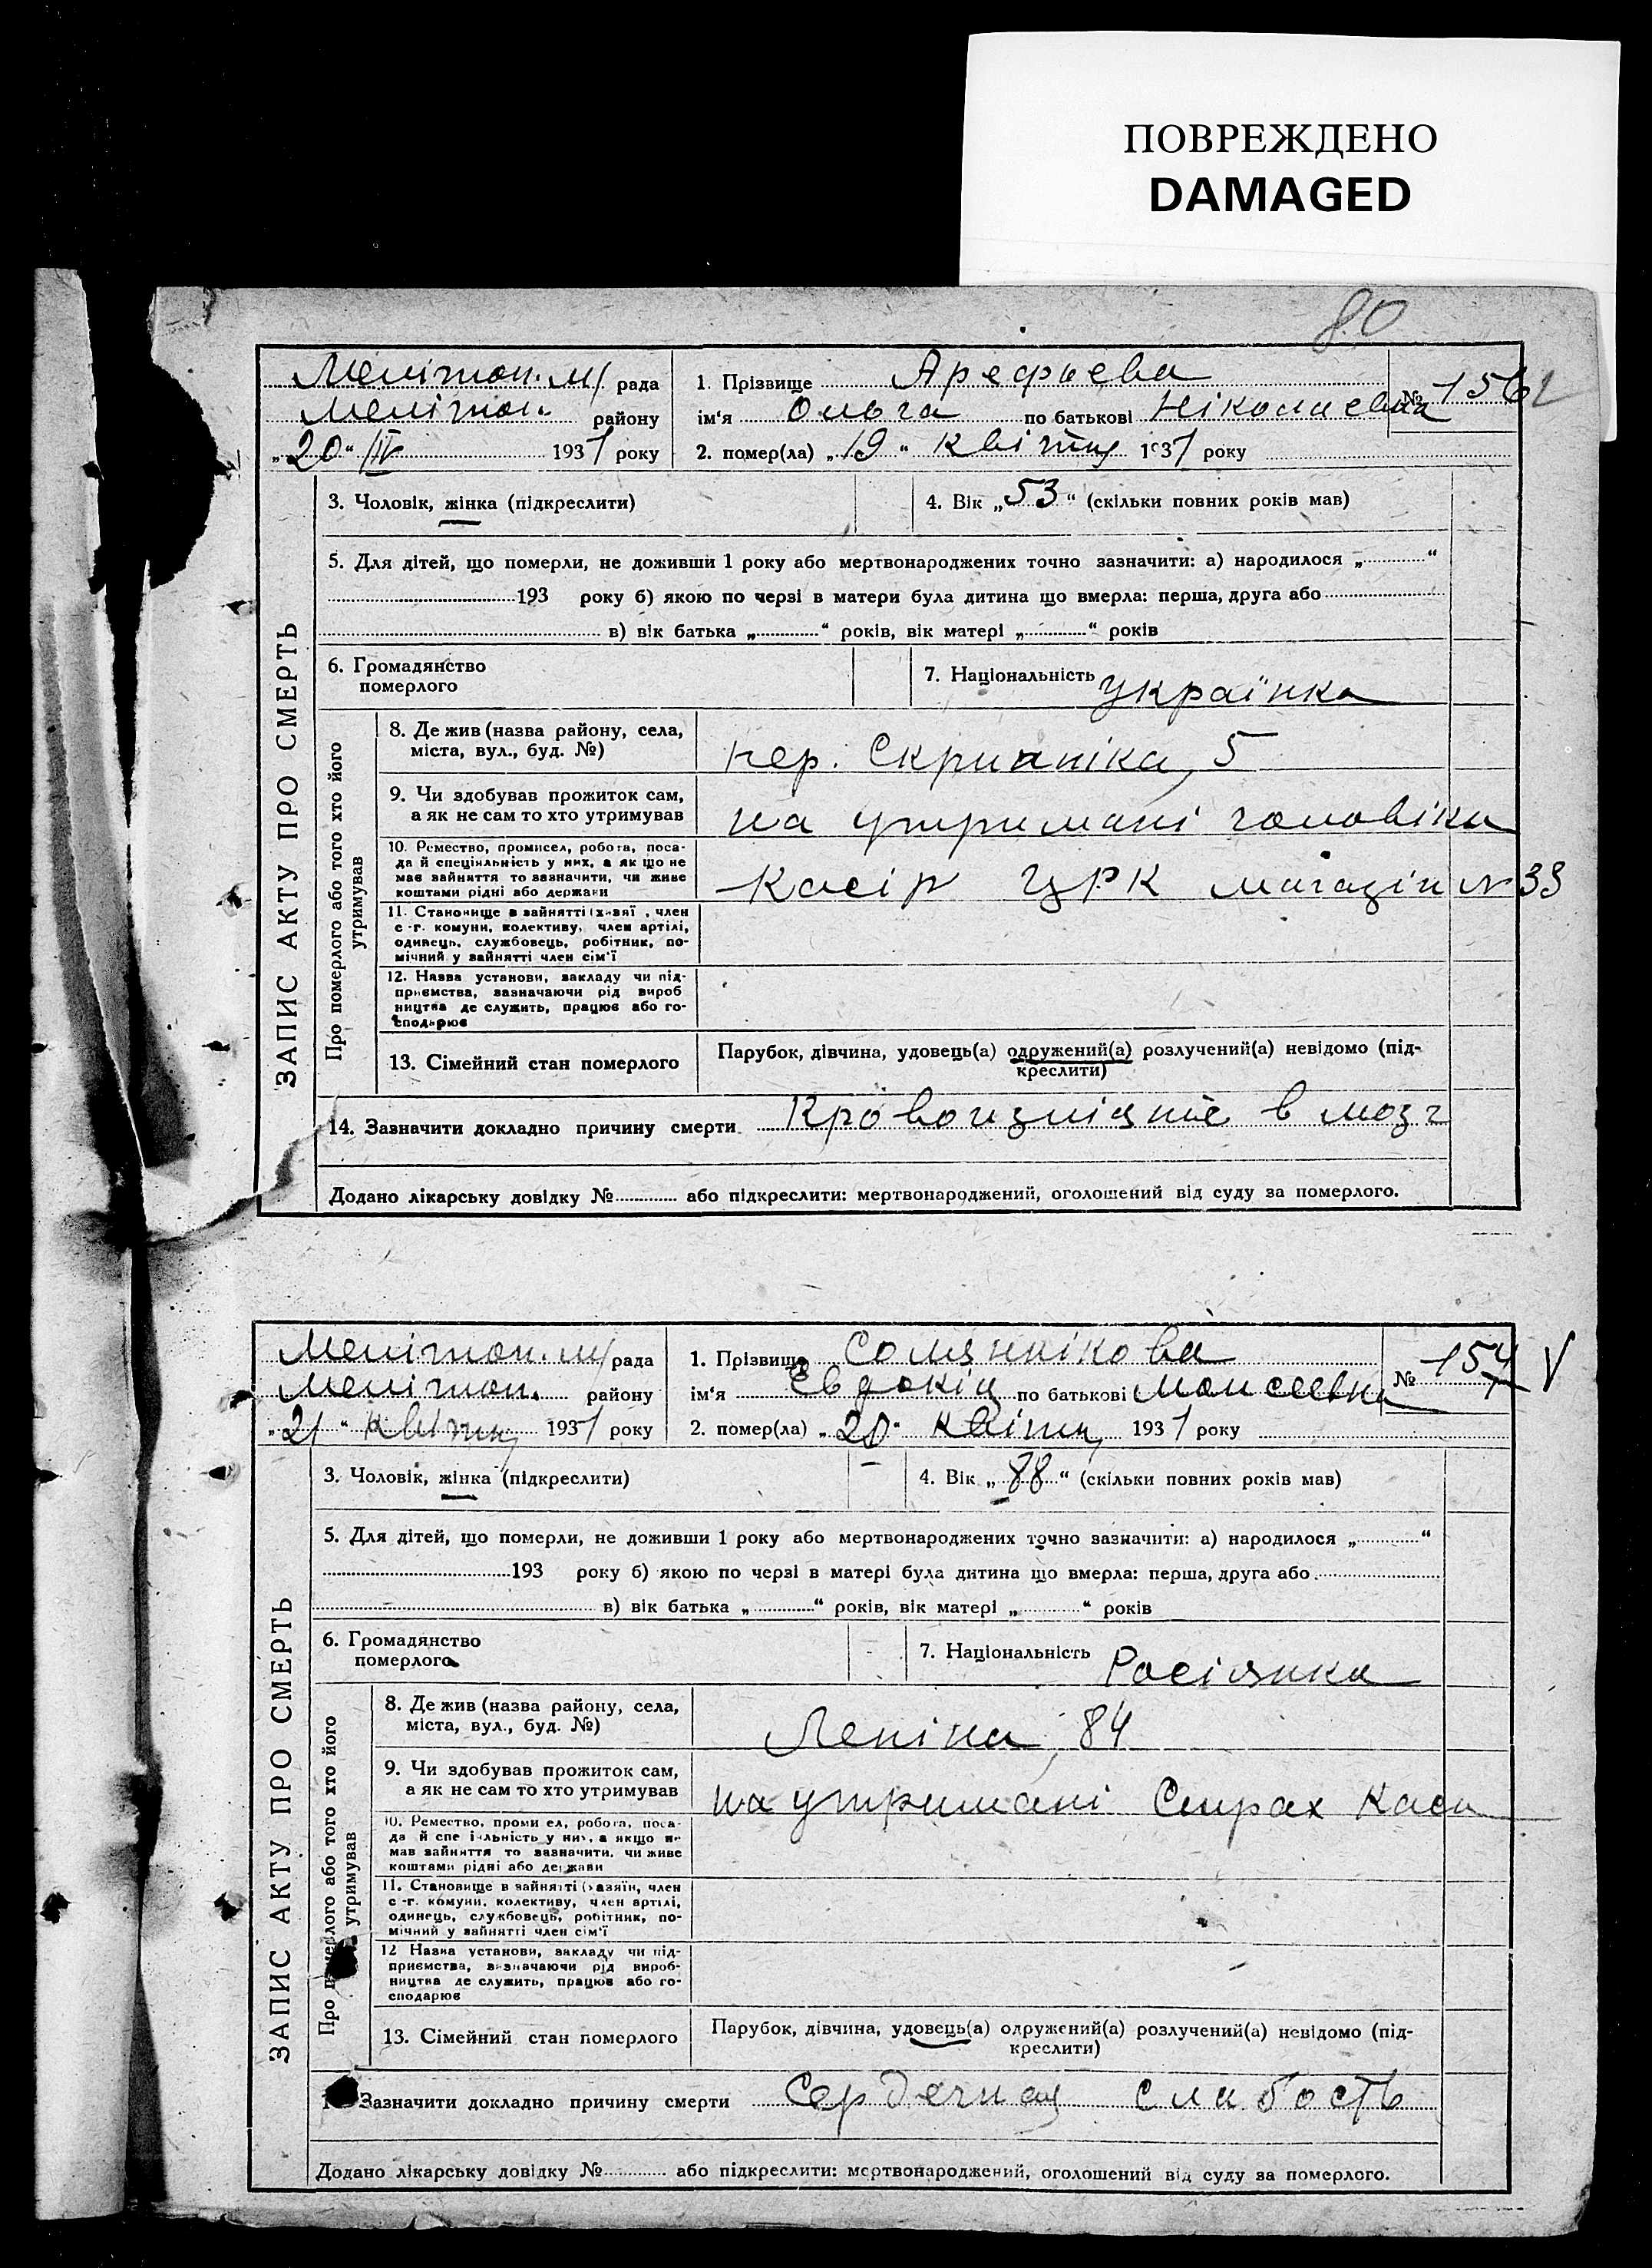 ПОВРЕЖДЕНО
DAMAGED
80
Мелітоп. м/ рада
Мелітоп. району
„20“ IV 1931 року
1. Прізвище Арефьева
ім‘я Ольга по батькові Ніколаевна
№ 156
2. помер(ла) „19“ квітня 1931 року
ЗАПИС АКТУ ПРО СМЕРТЬ
3. Чоловік, жінка (підкреслити)
4. Вік „53“ (скільки повних років мав)
5. Для дітей, що померли, не доживши 1 року або мертвонароджених точно зазначити: а) народилося „ “
193 року б) якою по черзі в матери була дитина що вмерла: перша, друга або
в) вік батька „ “ років, вік матері „ “ років
6. Громадянство
померлого
7. Національність українка
Про померлого або того хто його
утримував
8. Де жив (назва району, села,
міста, вул., буд. №)
пер. Скрипніка, 5
9. Чи здобував прожиток сам,
а як не сам то хто утримував
на утримані чоловіка
10. Ремество, промисел, робота, поса-
да й спеціяльність у них, а як що не
має зайняття то зазначити, чи живе
коштами рідні або держави
Касір ЦРК магазін № 33
11. Становище в зайнятті (хазяї , член
с.-г. комуни, колективу, член артілі,
одинець, службовець, робітник, по-
мічний у зайнятті член сім‘ї
12. Назва установи, закладу чи під-
приємства, зазначаючи рід вироб
ництва де служить, працює або го-
сподарює
13. Сімейний стан померлого
Парубок, дівчина, удовець(а) одружений(а) розлучений(а) невідомо (під-
креслити)
14. Зазначити докладно причину смерти Кровоизліяніе в мозг
Додано лікарську довідку № або підкреслити: мертвонароджений, оголошений від суду за померлого.
Мелітоп. м/ рада
Мелітоп. району
„21“ квітня 1931 року
1. Прізвище Солянікова
ім‘я Евдокія по батькові Моисеевна
№ 157 V
2. помер(ла) „20“ квітня 1931 року
ЗАПИС АКТУ ПРО СМЕРТЬ
3. Чоловік, жінка (підкреслити)
4. Вік „88“ (скільки повних років мав)
5. Для дітей, що померли, не доживши 1 року або мертвонароджених точно зазначити: а) народилося „ “
193 року б) якою по черзі в матері була дитина що вмерла: перша, друга або
в) вік батька „ “ років, вік матері „ “ років
6. Громадянство
померлого
7. Національність Росіянка
Про померлого або того хто його
утримував
8. Де жив (назва району, села,
міста, вул., буд. №)
Леніна, 84
9. Чи здобував прожиток сам,
а як не сам то хто утримував
на утримані Страх Каси
10. Ремество, промисел, робота, поса-
да й спеціяльність у них, а якщо не
мав зайняття то зазначити, чи живе
коштами рідні або держави
11. Становище в зайнятті (хазяїн, член
с.-г. комуни, колективу, член артілі,
одинець, службовець, робітник, по-
мічний у зайнятті член сім‘ї
12 Назва установи, закладу чи під-
приємства, зазначаючи рід вироб-
ництва де служить, працює або го-
сподарює
13. Сімейний стан померлого
Парубок, дівчина, удовець(а) одружений(а) розлучений(а) невідомо (під-
креслити)
Зазначити докладно причину смерти Сердечная слабость
Додано лікарську довідку № або підкреслити: мертвонароджений, оголошений від суду за померлого.